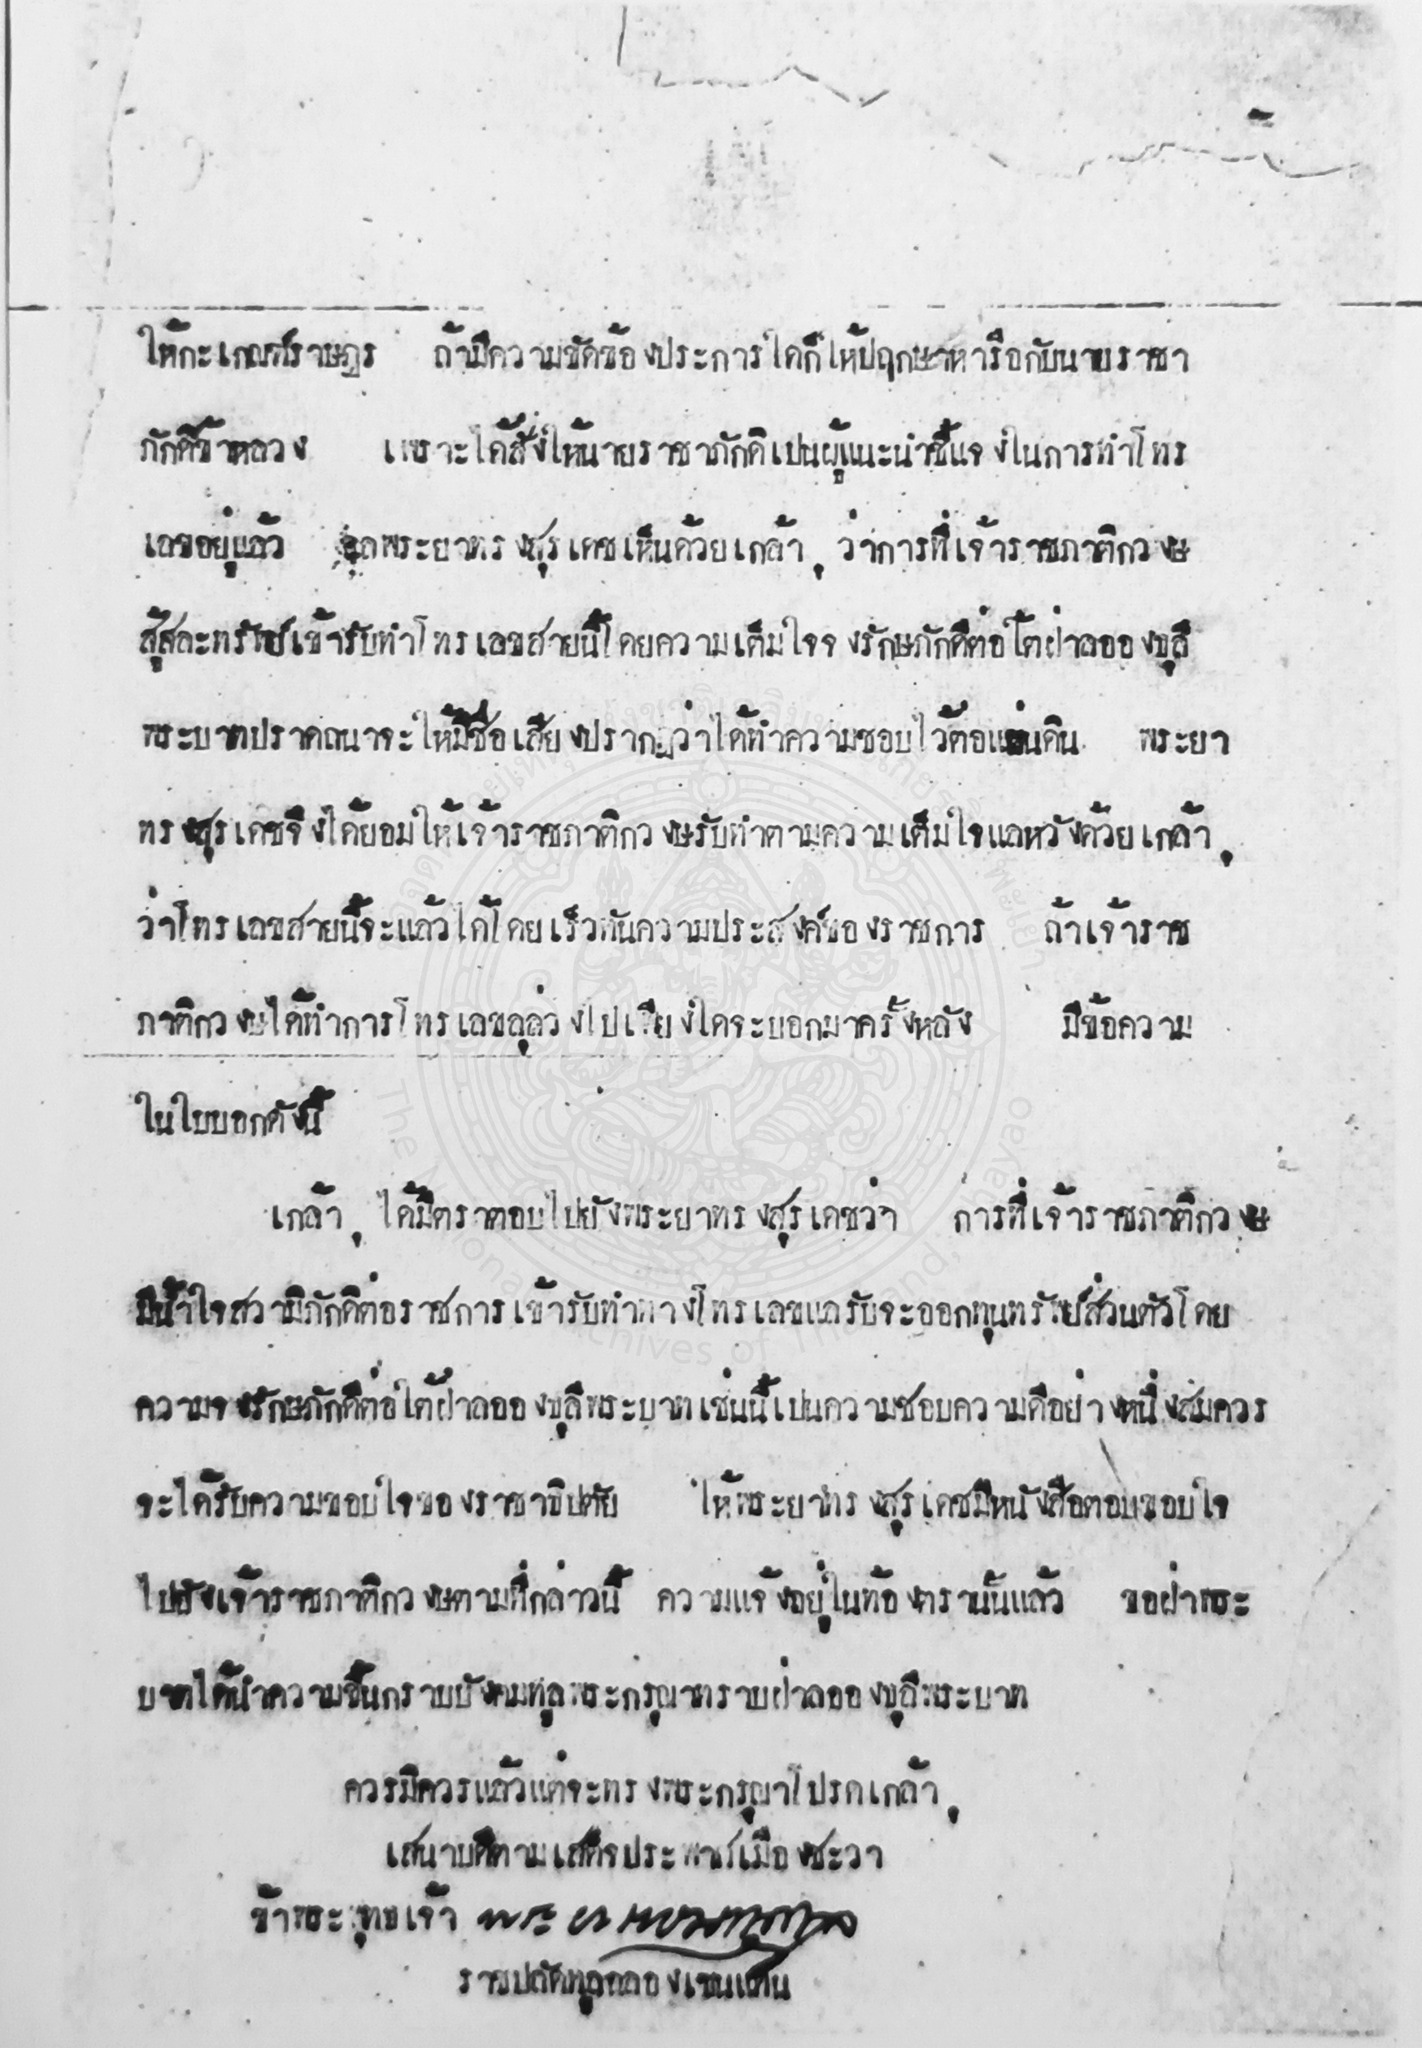 ให้กะเกณฑ์ราษฎร ถ้ามีความขัดข้องประการใดก็ให้ปฤกษาหารือกับนายราชา
ภักดีข้าหลวง เพราะได้สั่งให้นายราชาภักดิเปนผู้แนะนำชี้แจงในการทำโทร
เลขอยู่แล้ว พระยาทรงสุรเดชเห็นด้วยเกล้าฯ ว่าการที่เจ้าราชภาติกวงษ
สู้สละทรัพย์เข้ารับทำโทรเลขสายนี้โดยความเต็มใจจงรักษภักดีต่อใต้ฝ่าลอองธุลี
พระบาทปราถนาจะให้มีชื่อเสียงปรากฏว่าได้ทำความชอบไว้ต่อแผ่นดิน พระยา
ทรงสุรเดชจึงได้ยอมให้เจ้าราชภาติกวงษรับทำตามความเต็มใจแลหวังด้วยเกล้าฯ
ว่าโทรเลขสายนี้จะแล้วได้โดยเร็วทันความประสงค์ของราชการ ถ้าเจ้าราช
ภาติกวงษได้ทำการโทรเลขลุล่วงไปเพียงใดจะบอกมาครั้งหลัง มีข้อความ
ในใบบอกดังนี้
เกล้าฯ ได้มีตราตอบไปยังพระยาทรงสุรเดชว่า การที่เจ้าราชภาติกวงษ
มีน้ำใจสวามิภักดิต่อราชการเข้ารับทำทางโทรเลขแลรับจะออกทุนทรัพย์ส่วนตัวโดย
ความจงรักษภักดีต่อใต้ฝ่าลอองธุลีพระบาทเช่นนี้เปนความชอบความดีอย่างหนึ่งสมควร
จะได้รับความขอบใจของราชาธิปตัย ให้พระยาทรงสุรเดชมีหนังสือตอบขอบใจ
ไปยังเจ้าราชภาติกวงษตามที่กล่าวนี้ ความแจ้งอยู่ในท้องตรานั้นแล้ว ขอฝ่าพระ
บาทได้นำความขึ้นกราบบังคมทูลพระกรุณาทราบฝ่าลอองธุลีพระบาท
ควรมิควรแล้วแต่จะทรงพระกรุณาโปรดเกล้าฯ
เสนาบดีตามเสด็จประพาศเมืองชะวา
ข้าพระพุทธเจ้า พระยา
ราชปลัดทูลฉลองเซนแทน
The National Archives of Thailand, Phayao